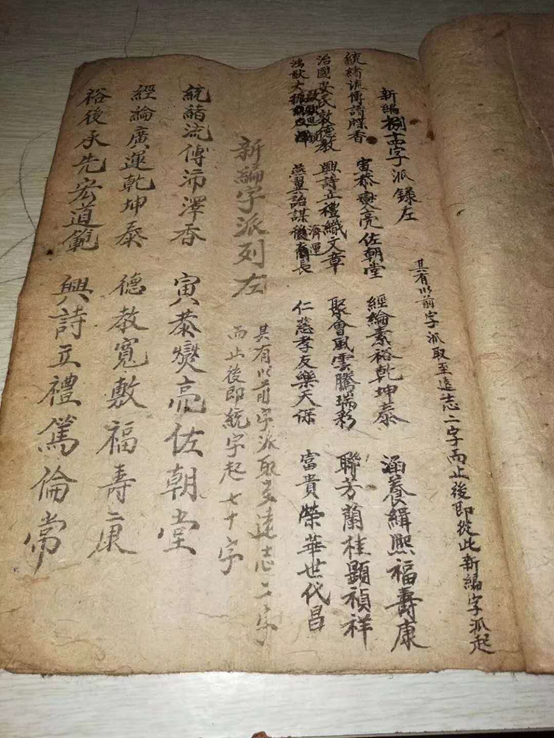 新編捌十四字派錄左
其有以前字派取至遠志二字而止後即從此新編字派起
統緒流傳詩牒香 寅恭燮亮佐朝堂 經綸素裕乾坤泰 涵養緝熙福壽康
治國安民敦德教 興詩立禮文章 聚會風雲騰瑞彩 聯芳蘭桂顯禎祥
鴻猷大振 燕翼詒謀長 仁慈孝友樂天保 富貴榮華世代昌
新編字派列左
其有以前字派取至遠志二字
而止後即統字起七十字
統緒流傳沛澤香 寅恭燮亮佐朝堂
經綸廣運乾坤泰 德教寬敷福壽康
裕後承先宏道範 興詩立禮篤倫常